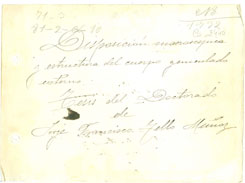 Disposición macroscópica
y estructura del cuerpo geniculado
externo
Tesis del Doctorado
de
José Francisco Tello Muñoz